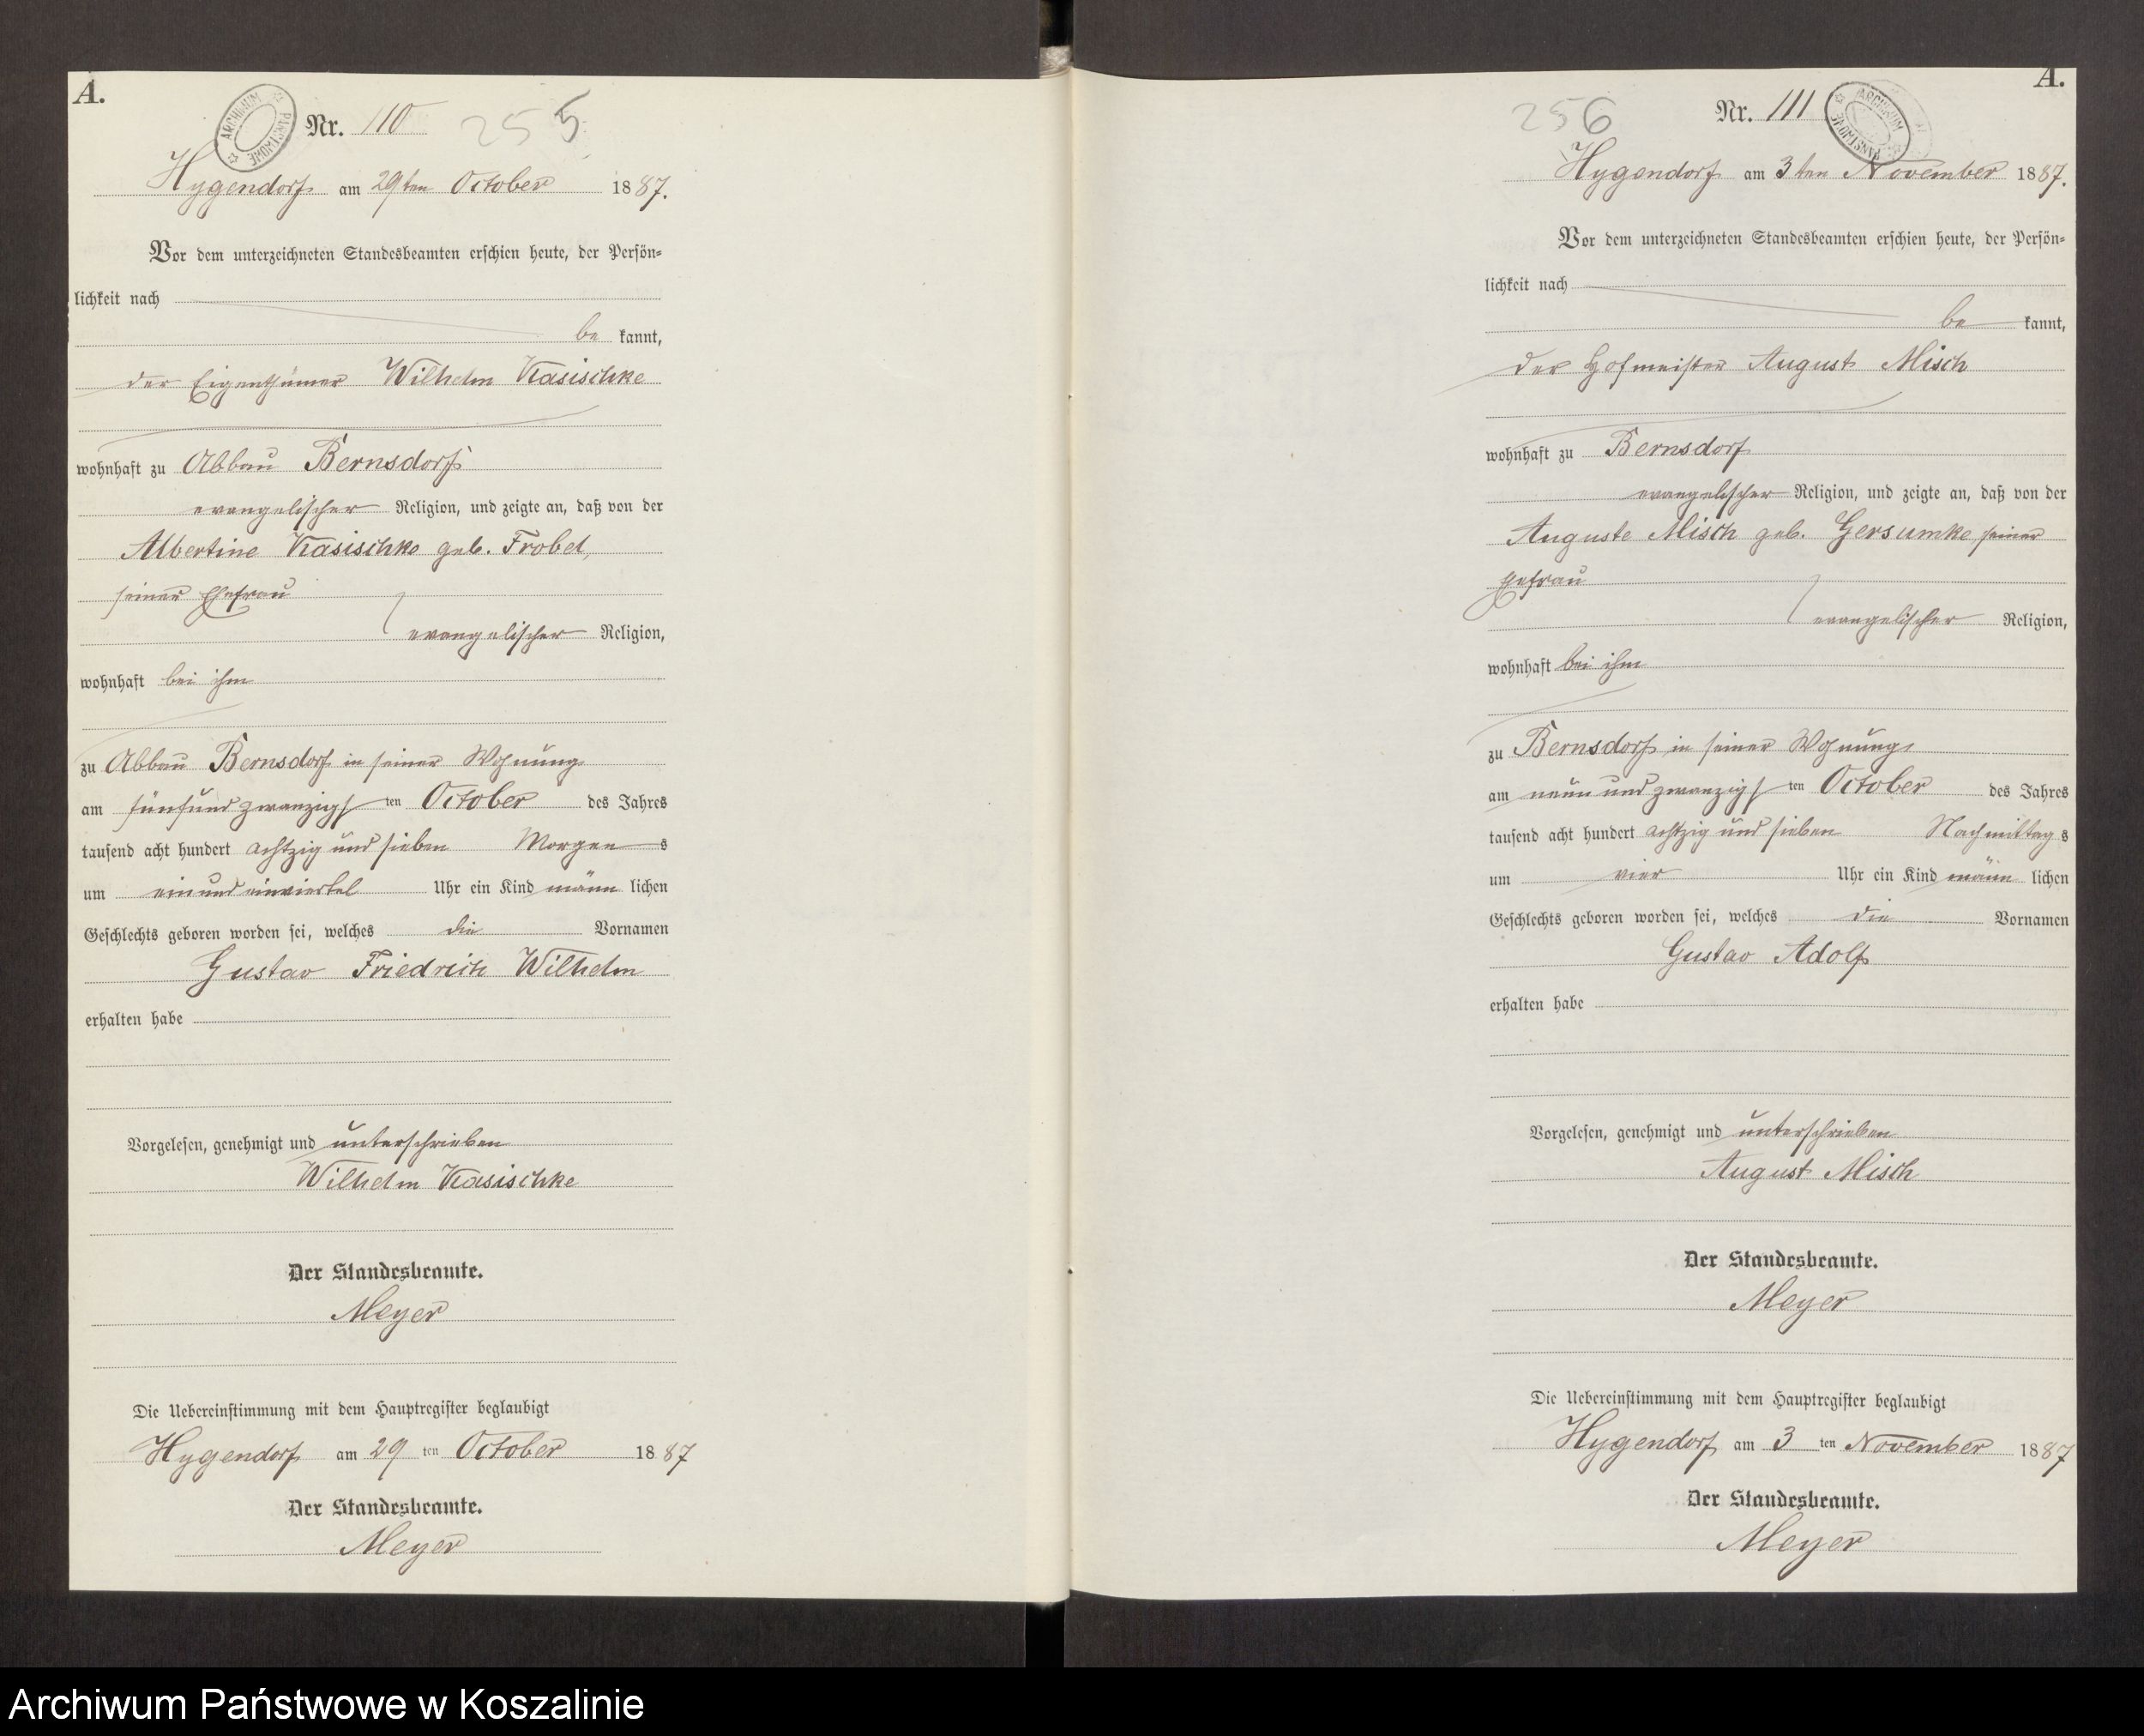 A.
ARCHIWUM PAŃSTWOWE
Nr. 110
255
Hygendorf am 29ten October 1887.
Vor dem unterzeichneten Standesbeamten erschien heute, der Persön-
lichkeit nach
be kannt,
der Eigenthümer Wilhelm Kasischke
wohnhaft zu Abbau Bernsdorf
evangelischer Religion, und zeigte an, daß von der
Albertine Kasischke geb. Frobel,
seiner Ehefrau
evangelischer Religion,
wohnhaft bei ihm
zu Abbau Bernsdorf in seiner Wohnung
am fünfundzwanzigsten October des Jahres
tausend acht hundert achtzig und sieben Morgens
um ein und einviertel Uhr ein Kind männlichen
Geschlechts geboren worden sei, welches die Vornamen
Gustav Friedrich Wilhelm
erhalten habe
Vorgelesen, genehmigt und unterschrieben
Wilhelm Kasischke
Der Standesbeamte.
Meyer
Die Uebereinstimmung mit dem Hauptregister beglaubigt
Hygendorf am 29 ten October 1887
Der Standesbeamte.
Meyer
A.
256
Nr. 111
ARCHIWUM PAŃSTWOWE
Hygendorf am 3ten November 1887.
Vor dem unterzeichneten Standesbeamten erschien heute, der Persön-
lichkeit nach
be kannt,
der Hofmeister August Misch
wohnhaft zu Bernsdorf
evangelischer Religion, und zeigte an, daß von der
Auguste Misch geb. Gersumke seiner
Ehefrau
evangelischer Religion,
wohnhaft bei ihm
zu Bernsdorf in seiner Wohnung
am neun und zwanzigsten October des Jahres
tausend acht hundert achtzig und sieben Nachmittags
um vier Uhr ein Kind männlichen
Geschlechts geboren worden sei, welches die Vornamen
Gustav Adolf
erhalten habe
Vorgelesen, genehmigt und unterschrieben
August Misch
Der Standesbeamte.
Meyer
Die Uebereinstimmung mit dem Hauptregister beglaubigt
Hygendorf am 3 ten November 1887
Der Standesbeamte.
Meyer
Archiwum Państwowe w Koszalinie